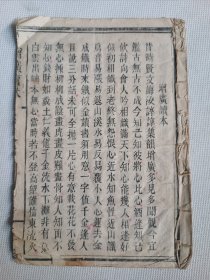 增廣讀本
昔時賢文誨汝諄諄集韻增廣多見多聞觀今宜
鑑古無古不成今知己知彼將心比心酒逢知己
飲詩向會人吟相識滿天下知心能幾人相逢好
似初相識到老終無怨恨心近水知魚性近山識
鳥音易漲易退山溪水易反易覆小人心運去金
成鐵時來鐵似金讀書須用意一字值千金逢人
且說三分話未可全拋一片心有意栽花花不發
無心插柳柳成陰畫虎畫皮難畫骨知人知面不
知心錢財如糞土仁義值千金流水下灘非有意
白雲出岫本無心當時若不登高望誰信東流